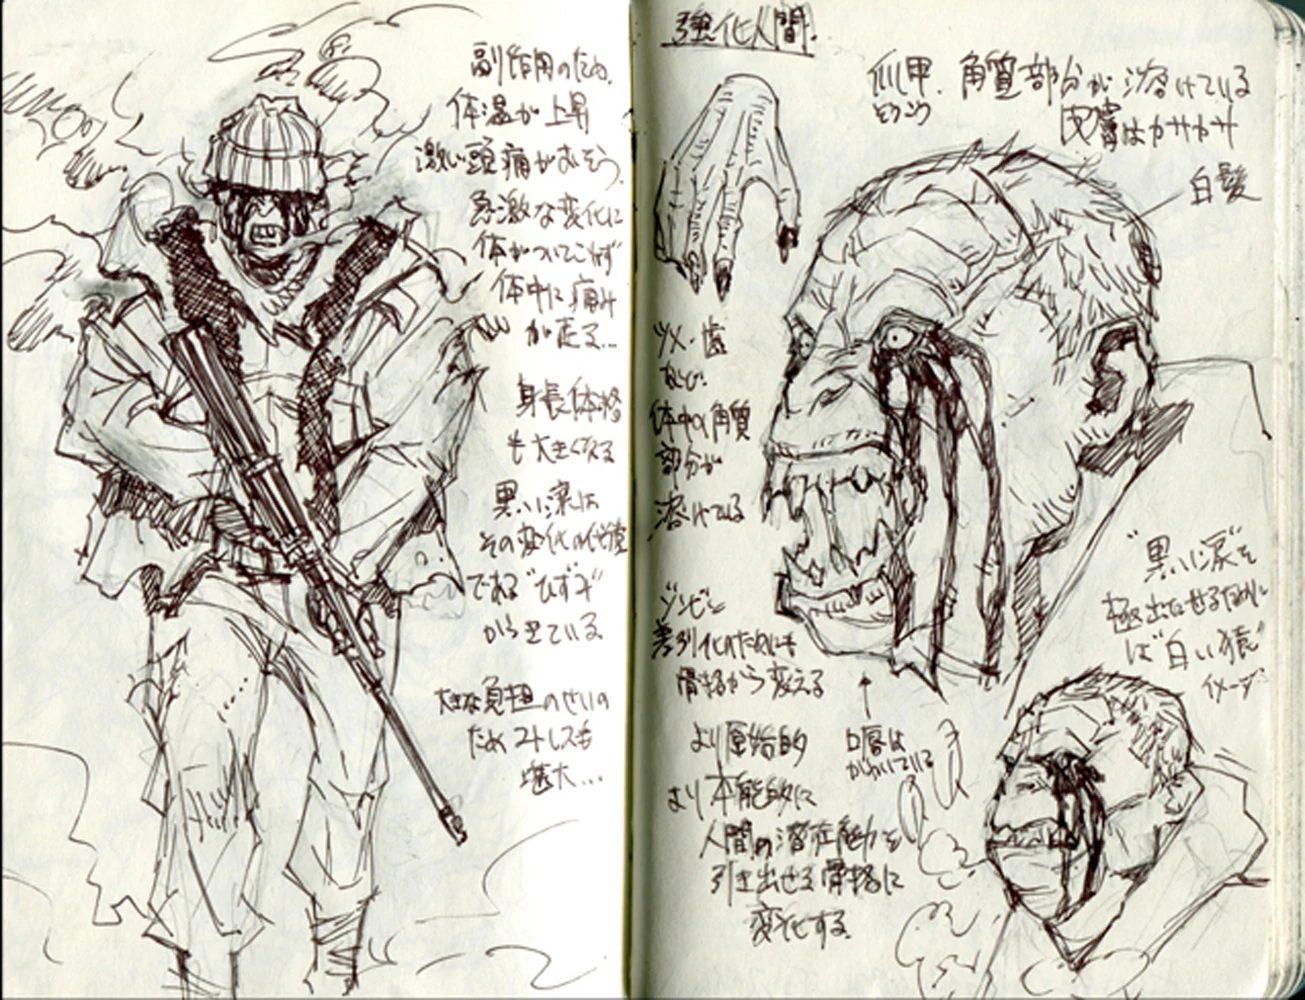 副作用のため、
体温が上昇
激しい頭痛がおそう。
急激な変化に
体がついてこれず
体中に痛み
が走る…
身長体格
も大きくなる
黒い涙は
その変化の代償
である"ひずみ"
から出ている
大きな負担のせいの
ためストレスも
甚大…
強化人間
爪甲、角質部分が溶けている
そうこう
皮膚はカサカサ
白髪
ツメ・歯
など
体中の角質
部分が
溶けている
ゾンビと
差別化のためにも
骨格から変える
より原始的
より本能的に
人間の潜在能力を
引き出せる骨格に
変化する。
口唇は
かわいている
"黒い涙"を
させるために
は"白い猿"
イメージ